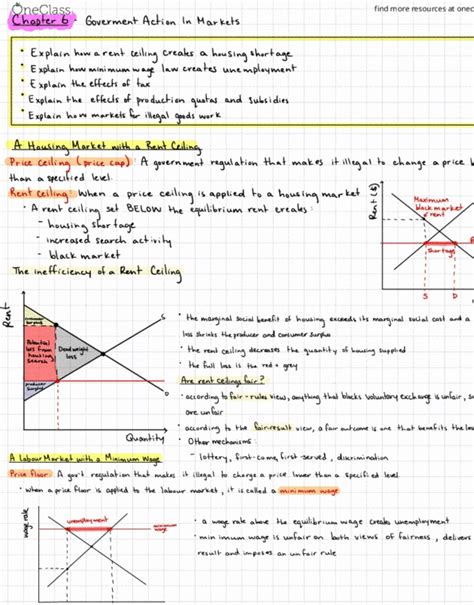 OneClass
find more resources at onec
Chapter 6 - Goverment Action In Markets
• Explain how a rent ceiling creates a housing shortage
• Explain how minimum wage law creates unemployment
• Explain the effects of tax
• Explain the effects of production quotas and subsidies
• Explain how markets for illegal goods work
A Housing Market with a Rent Ceiling
Price ceiling (price cap): A government regulation that makes it illegal to change a price h
than a specified level.
Rent Ceiling: When a price ceiling is applied to a housing market
• A rent ceiling set BELOW the equilibrium rent creates:
- housing shortage
- increased search activity
- black market
Rent ($)
Maximum
black market
rent
shortage
S D
The inefficiency of a Rent Ceiling
Rent
consumer
surplus
Potential
loss from
housing
search
Deadweight
loss
producer
surplus
S
D
Quantity
• the marginal social benefit of housing exceeds its marginal social cost and a
loss shrinks the producer and consumer surplus
• the rent ceiling decreases the quantity of housing supplied
• the full loss is the red + grey
Are rent ceilings fair?
• according to fair-rules view, anything that blocks voluntary exchange is unfair, so
are unfair
• according to the fair result view, a fair outcome is one that benefits the
• Other mechanisms:
- lottery, first-come, first-served, discrimination
A Labour Market with a Minimum Wage
Price floor: A gov't regulation that makes it illegal to charge a price lower than a specified level.
• when a price floor is applied to the labour market, it is called a minimum wage
wage rate
unemployment
minimum
wage
• a wage rate above the equilibrium wage creates unemployment
• minimum wage is unfair on both views of fairness, delivers
result and imposes an unfair rule